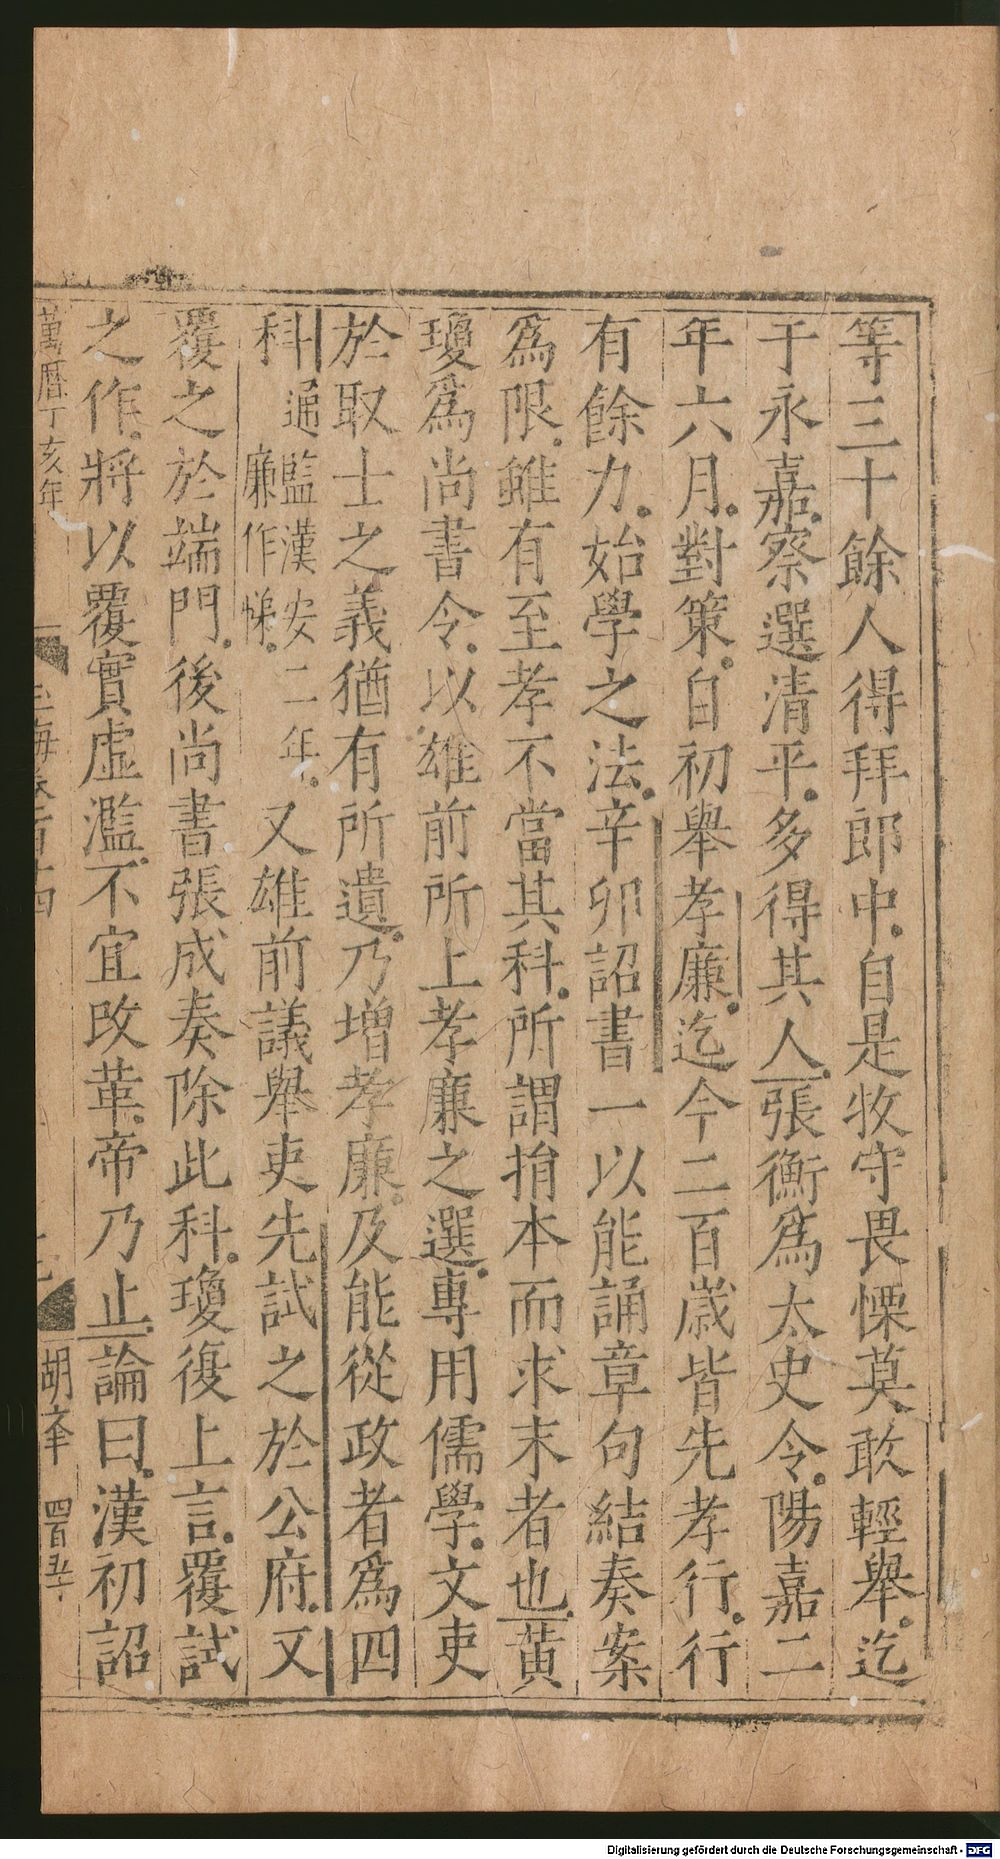 等三十餘人得拜郎中自是牧守畏慄莫敢輕舉迄
于永嘉察選清平多得其人張衡爲太史令陽嘉二
年六月對策自初舉孝廉迄今二百歲皆先孝行行
有餘力始學之法辛卯詔書一以能誦章句結奏案
爲限雖有至孝不當其科所謂捐本而求末者也黃
瓊爲尚書令以雄前所上孝廉之選專用儒學文吏
於取士之義猶有所遺乃增孝廉及能從政者爲四
科通監漢安二年廉作悌又雄前議舉吏先試之於公府又
覆之於端門後尚書張成奏除此科瓊復上言覆試
之作將以覆實虛濫不宜改革帝乃止論曰漢初詔
萬曆丁亥年
玉海卷百十四
胡宰 四百五十
Digitalisierung gefördert durch die Deutsche Forschungsgemeinschaft - DFG